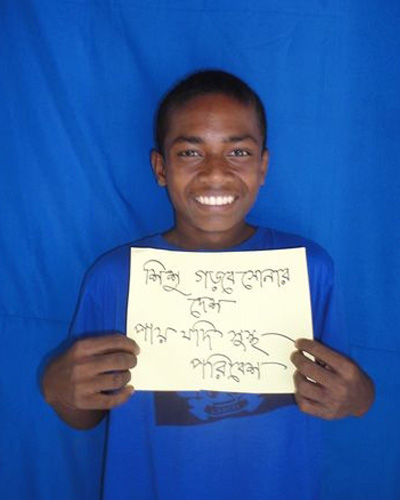 শিশু গড়বে সোনার
দেশ
পায় যদি সুস্থ
পরিবেশ